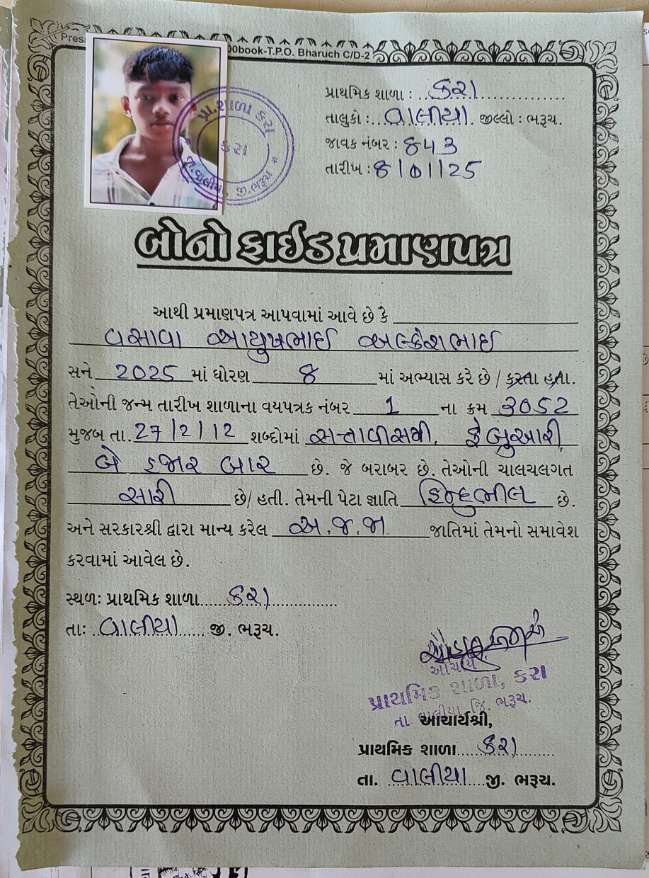 Pres
00book-T.P.O. Bharuch C/D-2
પ્રા. શાળા કરા
કરા
તા. વાલીયા, જી. ભરૂચ
પ્રાથમિક શાળા : કરા
તાલુકો : વાલીયા. જીલ્લો : ભરૂચ.
જાવક નંબર : 843
તારીખ : 8/01/25
બોનો ફાઇડ પ્રમાણપત્ર
આથી પ્રમાણપત્ર આપવામાં આવે છે કે
વસાવા આયુષભાઈ અલ્કેશભાઈ
સને 2025 માં ધોરણ 8 માં અભ્યાસ કરે છે / કરતા હતા.
તેઓની જન્મ તારીખ શાળાના વયપત્રક નંબર 1 ના ક્રમ 3052
મુજબ તા. 27/2/12 શબ્દોમાં સત્તાવીસમી, ફેબ્રુઆરી,
બે હજાર બાર છે. જે બરાબર છે. તેઓની ચાલચલગત
સારી છે/ હતી. તેમની પેટા જ્ઞાતિ હિન્દુભીલ છે.
અને સરકારશ્રી દ્વારા માન્ય કરેલ અ.જ.જા જાતિમાં તેમનો સમાવેશ
કરવામાં આવેલ છે.
સ્થળ: પ્રાથમિક શાળા કરા
તા: વાલીયા જી. ભરૂચ.
આચાર્ય
પ્રાથમિક શાળા, કરા
તા. વાલીયા જિ. ભરૂચ.
આચાર્યશ્રી,
પ્રાથમિક શાળા કરા
તા. વાલીયા જી. ભરૂચ.